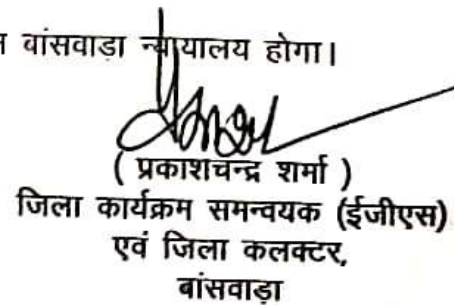 बांसवाड़ा न्यायालय होगा।
( प्रकाशचन्द्र शर्मा )
जिला कार्यक्रम समन्वयक (ईजीएस)
एवं जिला कलक्टर,
बांसवाड़ा